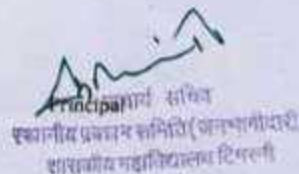 Principal प्राचार्य सचिव
स्थानीय प्रबंधन समिति (जनभागीदारी)
शासकीय महाविद्यालय टिमरनी